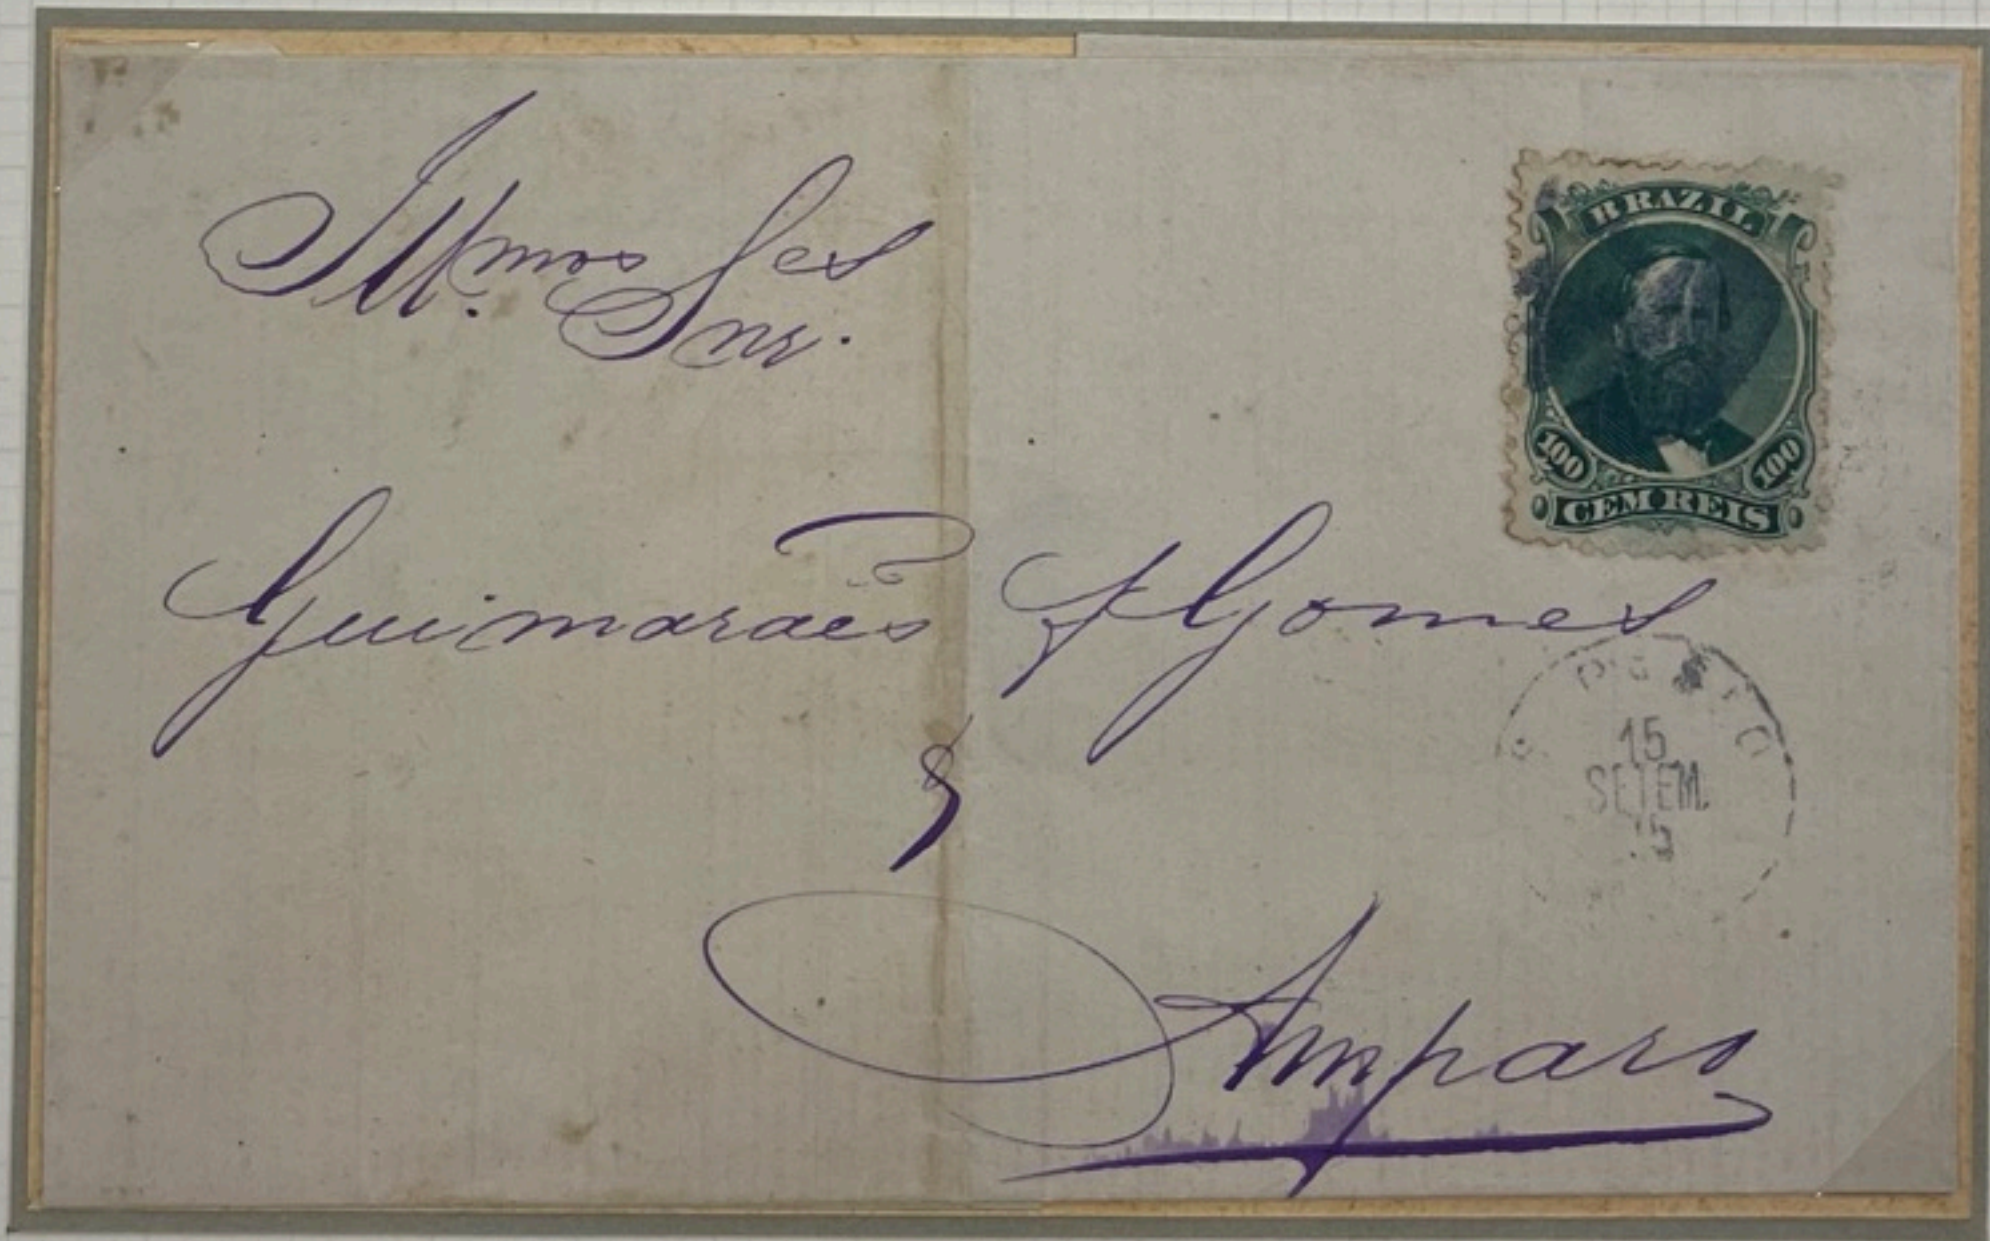 Illmos Ses
Snr.
BRAZIL
100 100
CEM REIS
Guimarães & Gomes
15
SETEM.
Amparo